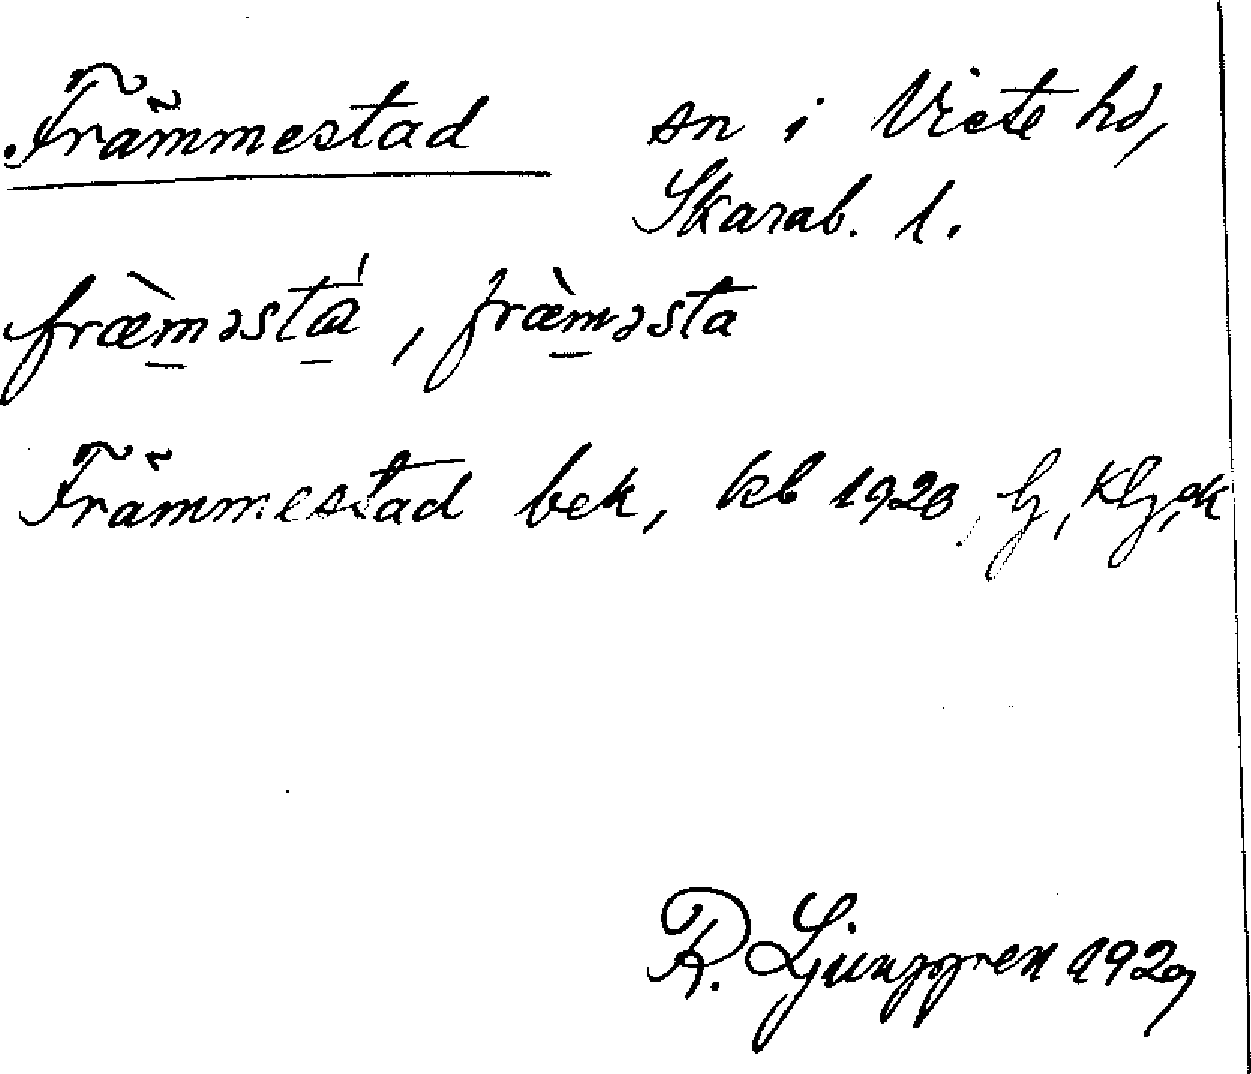 Främmestad sn i Viste hd,
Skarab. l.
fræ̀məstá, fræ̀məsta
Främmestad bek, kb 1920, Lj, Klj, ek
R. Ljunggren 1929